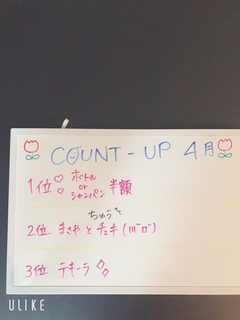 COUNT-UP 4月
1位♡ ボトル or シャンパン 半額
ちゅうそ
2位 まさやとチェキ
3位 テキーラ
ULIKE